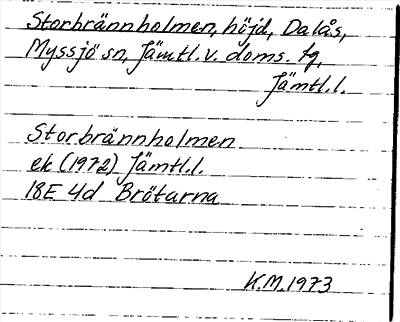 Storbrännholmen, höjd, Dalås,
Myssjö sn, Jämtl. v. doms. tg,
Jämtl.l.
Storbrännholmen
ek (1972) Jämtl.l.
18E 4d Brötarna
K.M. 1973